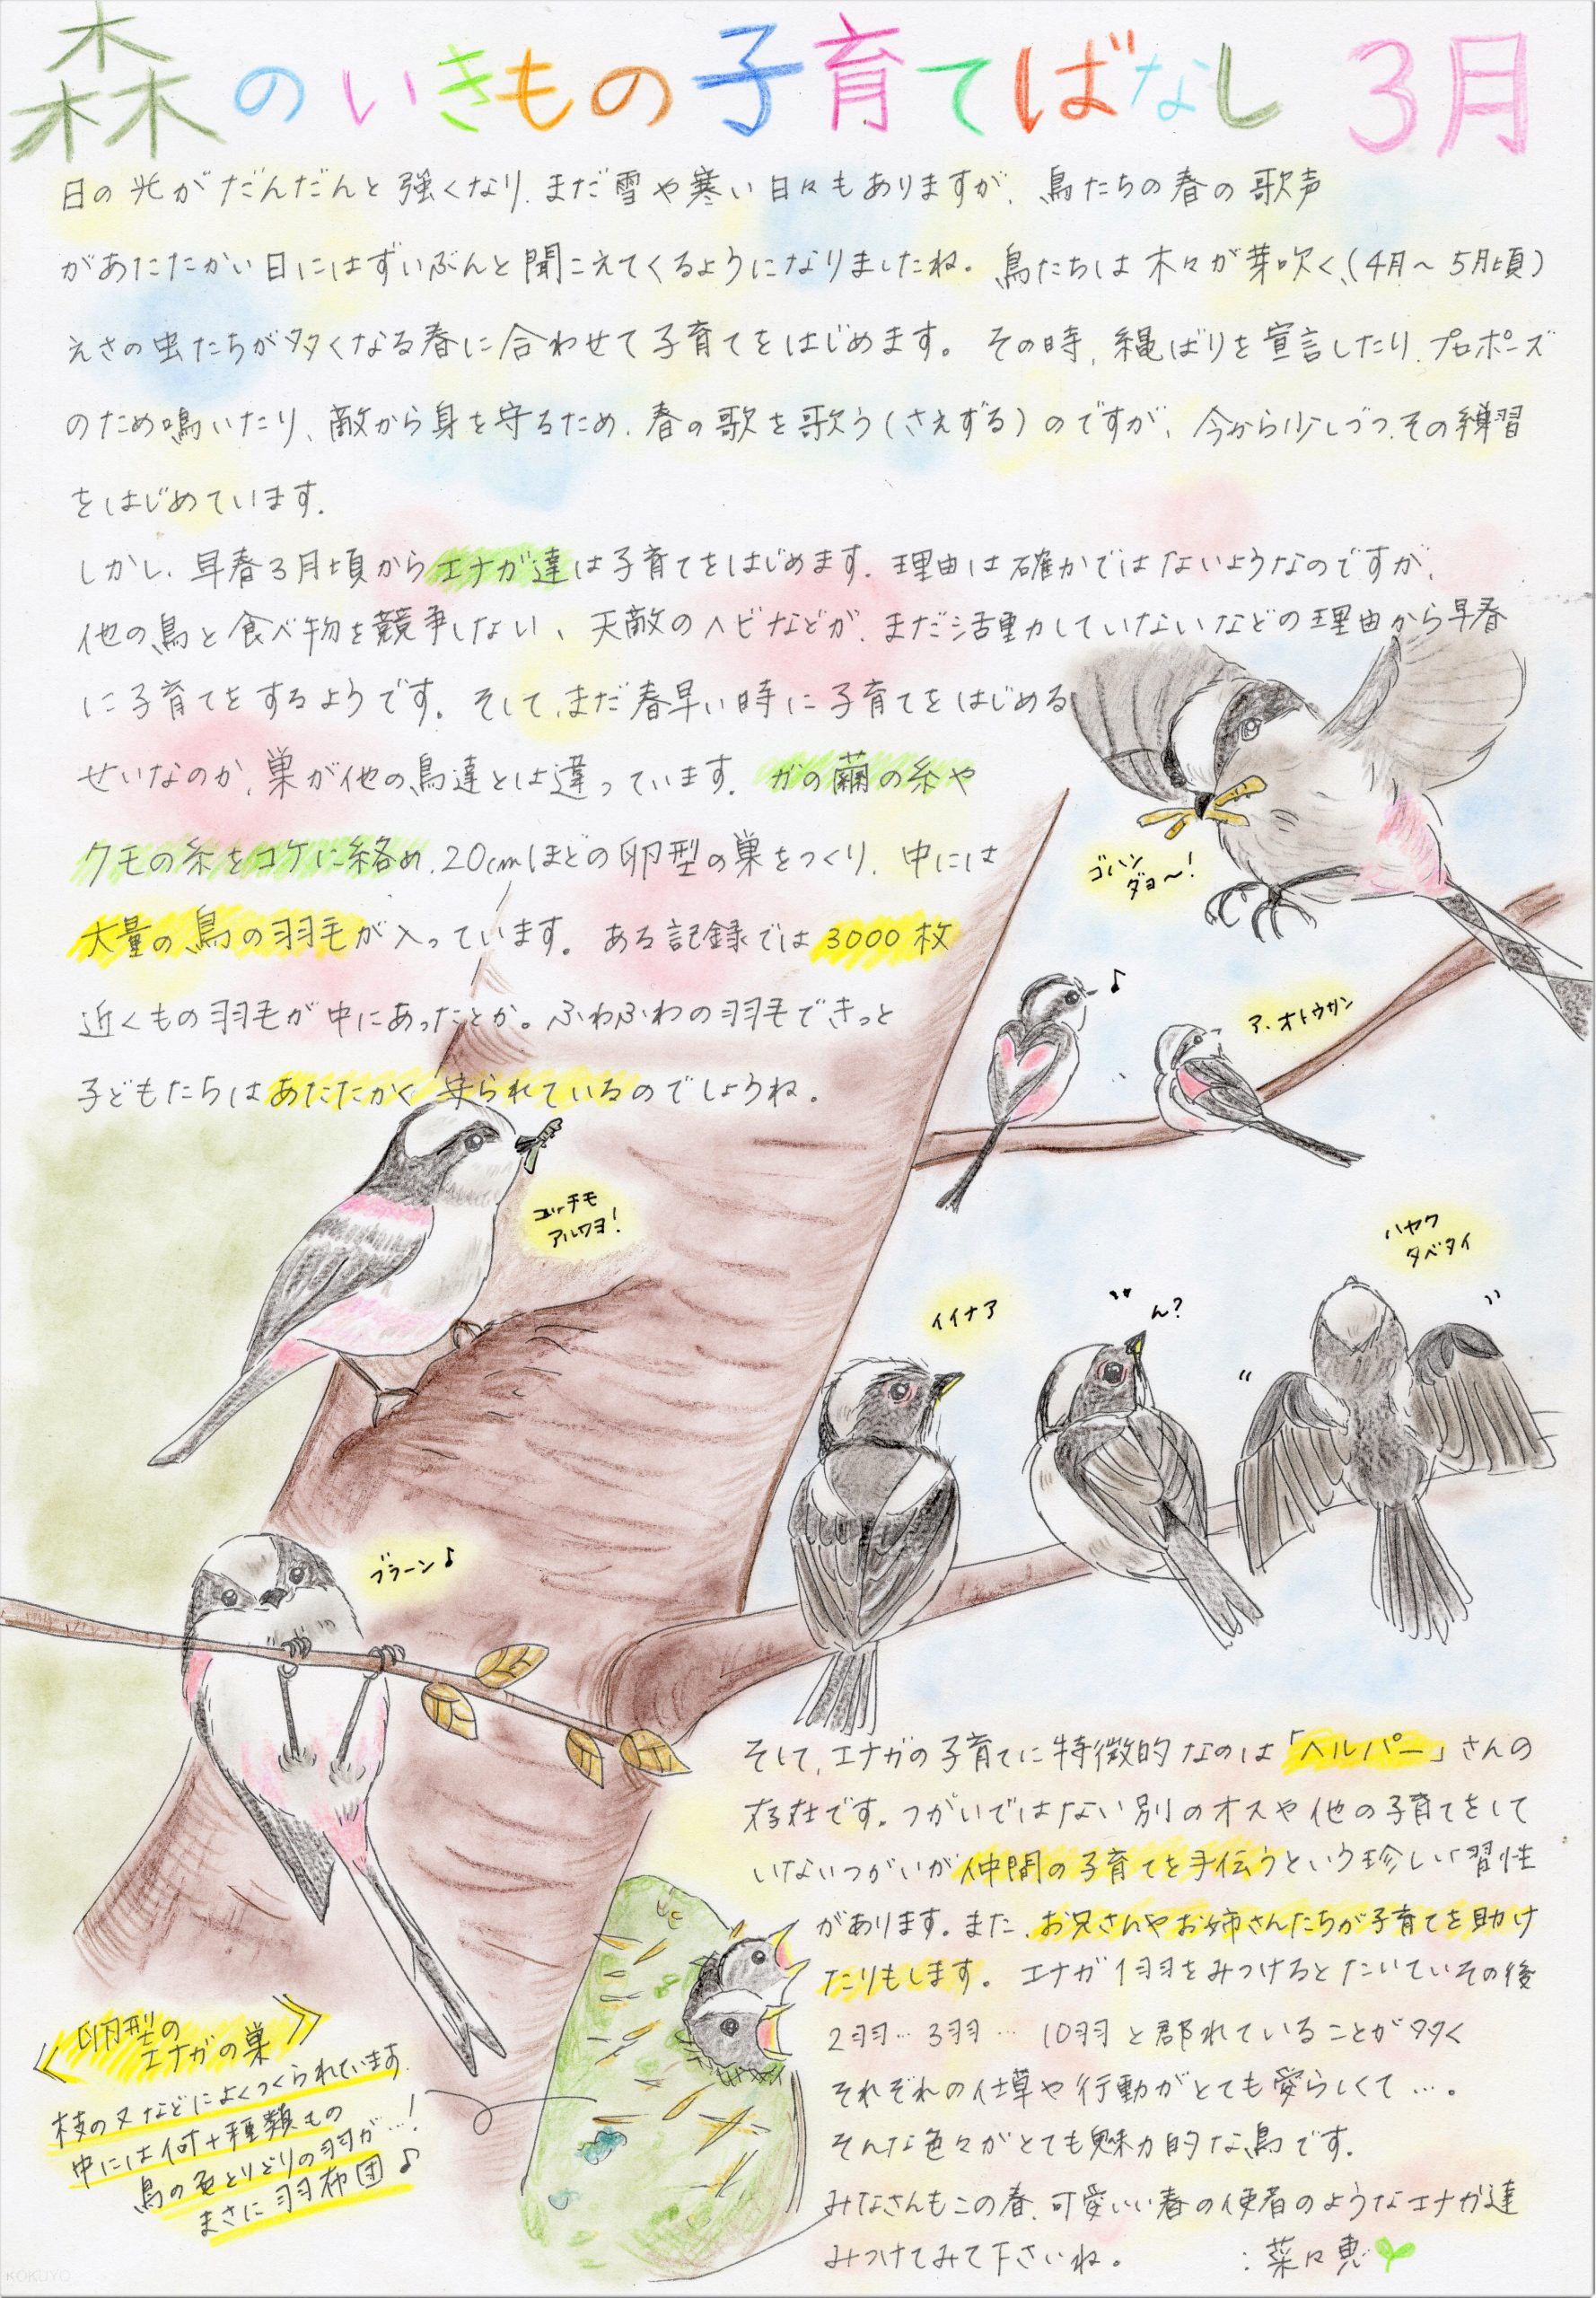 森のいきもの子育てばなし 3月
日の光がだんだんと強くなり、まだ雪や寒い日々もありますが、鳥たちの春の歌声
があたたかい日にはずいぶんと聞こえてくるようになりましたね。鳥たちは木々が芽吹く、(4月〜5月頃)
えさの虫たちが多くなる春に合わせて子育てをはじめます。その時、縄ばりを宣言したり、プロポーズ
のため鳴いたり、敵から身を守るため、春の歌を歌う(さえずる)のですが、今から少しづつ、その練習
をはじめています。
しかし、早春3月頃からエナガ達は子育てをはじめます。理由は確かではないようなのですが、
他の鳥と食べ物を競争しない、天敵のヘビなどが、まだ活動していないなどの理由から早春
に子育てをするようです。そして、まだ春早い時に子育てをはじめる
せいなのか、巣が他の鳥達とは違っています。ガの繭の糸や
クモの糸をコケに絡め、20cmほどの卵型の巣をつくり、中には
大量の鳥の羽毛が入っています。ある記録では3000枚
近くもの羽毛が中にあったとか。ふわふわの羽毛できっと
子どもたちはあたたかく守られているのでしょうね。
ゴハン
ダョ〜!
♪
ア、オトウサン
コッチモ
アルワヨ!
ハヤク
タベタイ
イイナア
ん?
ブラーン♪
そして、エナガの子育てに特徴的なのは「ヘルパー」さんの
存在です。つがいではない別のオスや他の子育てをして
いないつがいが仲間の子育てを手伝うという珍しい習性
があります。また、お兄さんやお姉さんたちが子育てを助け
たりもします。エナガ1羽をみつけるとたいていその後
2羽…3羽…10羽と群れていることが多く
それぞれの仕草や行動がとても愛らしくて…。
そんな色々がとても魅力的な鳥です。
みなさんもこの春、可愛いい春の使者のようなエナガ達
みつけてみて下さいね。 :菜々恵
《卵型の
エナガの巣》
枝の又などによくつくられています。
中には何十種類もの
鳥の色とりどりの羽が…!
まさに羽布団♪
KOKUYO